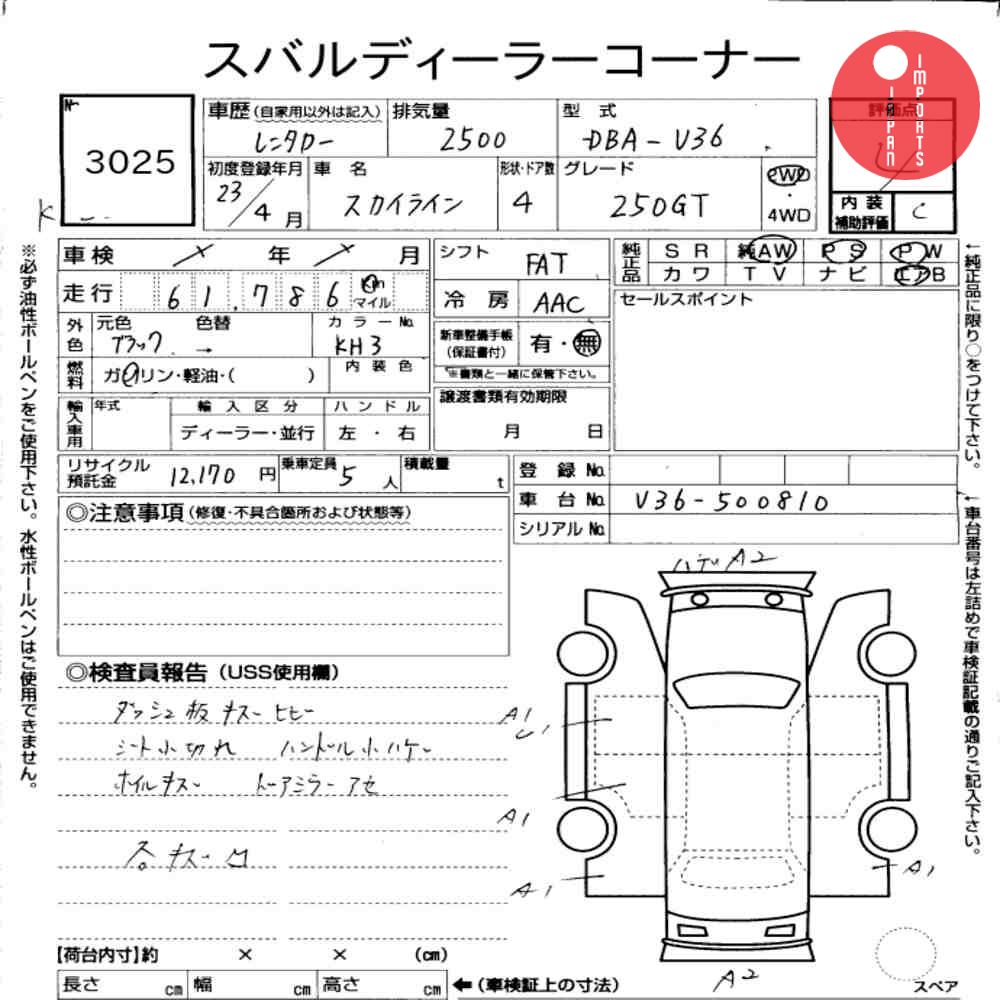 スバルディーラーコーナー
JAPAN IMPORTS
No.
3025
車歴 (自家用以外は記入) 排気量 型 式 評価点
2500 DBA-V36
初度登録年月 車 名 形状・ドア数 グレード 2WD
23/4月 スカイライン 4 250GT 4WD
内 装 補助評価 C
車検 / 年 / 月 シフト FAT 純正品 SR 純AW PS PW
カワ TV ナビ エアB
走行 61,786 Km マイル 冷房 AAC セールスポイント
外色 元色 色替 カラーNo. 新車整備手帳 (保証書付) 有・無
ブラック → KH3
※書類と一緒に保管下さい。
燃料 ガソリン・軽油・( ) 内装色
譲渡書類有効期限
月 日
輸入車用 年式 輸入区分 ハンドル
ディーラー・並行 左・右
リサイクル預託金 12,170 円 乗車定員 5 人 積載量 t
登録No.
車台No. V36-500810
シリアルNo.
◎注意事項(修復・不具合箇所および状態等)
◎検査員報告(USS使用欄)
ダッシュ板キズ ヒビ
シート小切れ ハンドル小ハゲ
ホイルキズ ドアミラーアセ
キズ 凹
A2
A1
A1
A1
A1
A2
【荷台内寸】約 × × (cm)
長さ cm 幅 cm 高さ cm ←(車検証上の寸法)
スペア
※必ず油性ボールペンをご使用下さい。水性ボールペンはご使用できません。
←純正品に限り○をつけて下さい。
←車台番号は左詰めで車検証記載の通りご記入下さい。